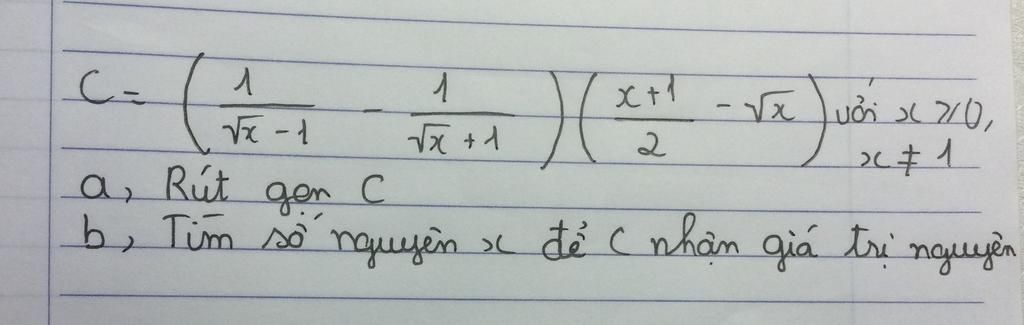 C = ( 1/(√x - 1) - 1/(√x + 1) ) ( (x+1)/2 - √x ) với x ≥ 0, x ≠ 1
a, Rút gọn C
b, Tìm số nguyên x để C nhận giá trị nguyên